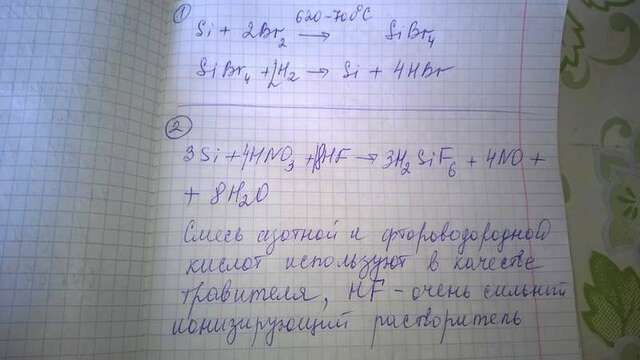 1
620-700°C
Si + 2Br₂ → SiBr₄
SiBr₄ + 2H₂ → Si + 4HBr
2
3Si + 4HNO₃ + 18HF → 3H₂SiF₆ + 4NO +
+ 8H₂O
Смесь азотной и фтороводородной
кислот используют в качестве
травителя, HF - очень сильный
ионизирующий растворитель